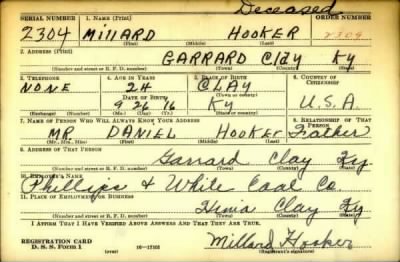 Deceased
SERIAL NUMBER 1. NAME (Print) ORDER NUMBER
2304 MillARD HOOKER 2309
(First) (Middle) (Last)
2. ADDRESS (Print)
GARRARD Clay Ky
(Number and street or R. F. D. number) (Town) (County) (State)
3. TELEPHONE 4. AGE IN YEARS 5. PLACE OF BIRTH 6. COUNTRY OF CITIZENSHIP
NONE 24 CLAY
DATE OF BIRTH (Town or county)
9 26 16 Ky U.S.A.
(Exchange) (Number) (Mo.) (Day) (Yr.) (State or country)
7. NAME OF PERSON WHO WILL ALWAYS KNOW YOUR ADDRESS 8. RELATIONSHIP OF THAT PERSON
MR DANIEL HOOKER Father
(Mr., Mrs., Miss) (First) (Middle) (Last)
9. ADDRESS OF THAT PERSON
Garrard Clay Ky.
(Number and street or R. F. D. number) (Town) (County) (State)
10. EMPLOYER'S NAME
Phillips & White Coal Co.
11. PLACE OF EMPLOYMENT OR BUSINESS
Clay Ky
(Number and street or R. F. D. number) (Town) (County) (State)
I AFFIRM THAT I HAVE VERIFIED ABOVE ANSWERS AND THAT THEY ARE TRUE.
REGISTRATION CARD
D. S. S. FORM 1 (over) 16—17105 Millard Hooker
(Registrant's signature)